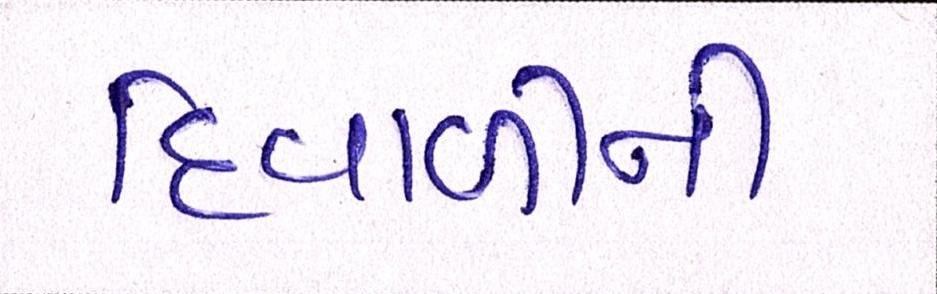 દિવાળીની